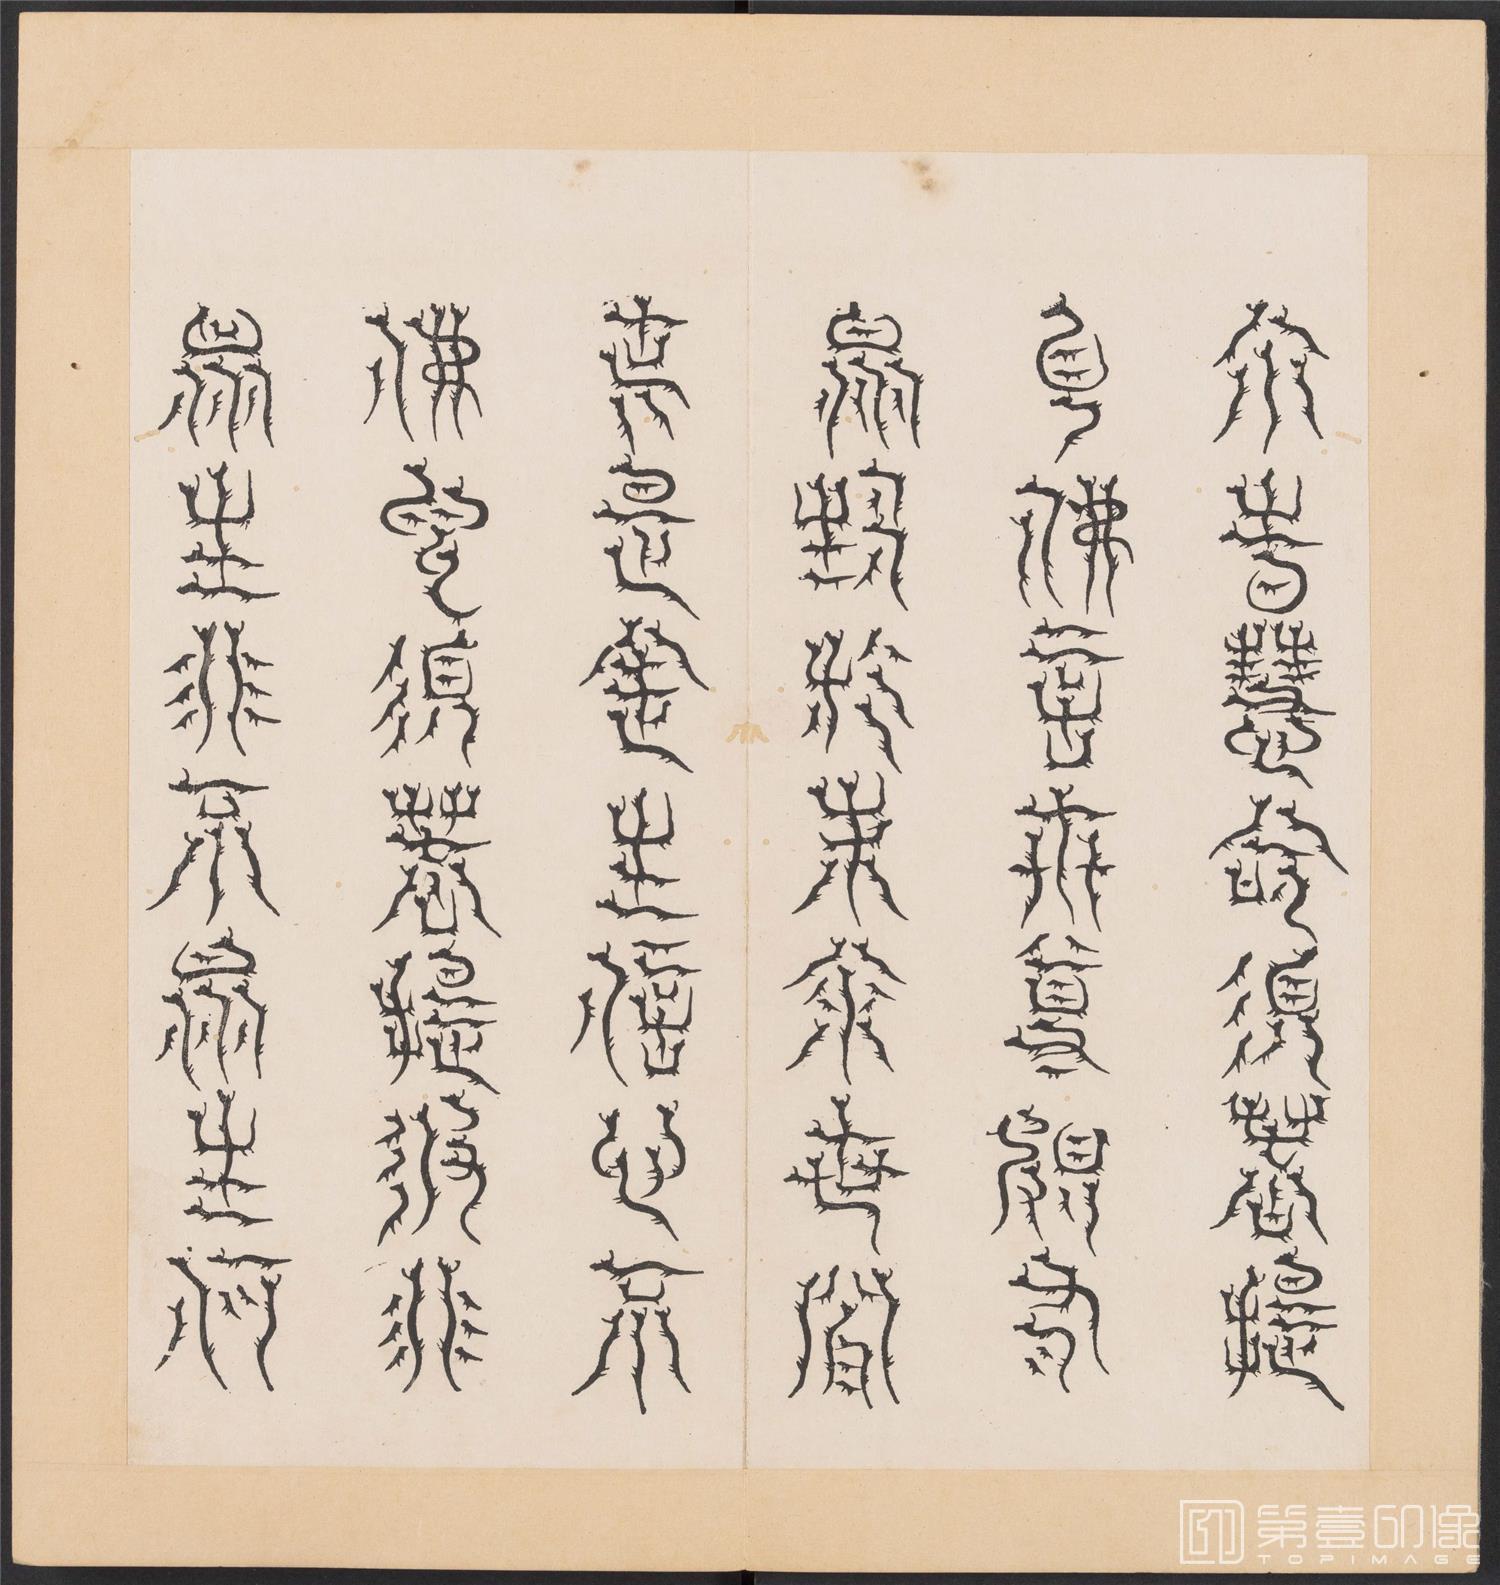 尒時慧命須菩提
白佛言世尊頗有
眾生於未來世聞
說是法生信心不
佛言須菩提彼非
眾生非不眾生何
第壹印像
TOPIMAGE